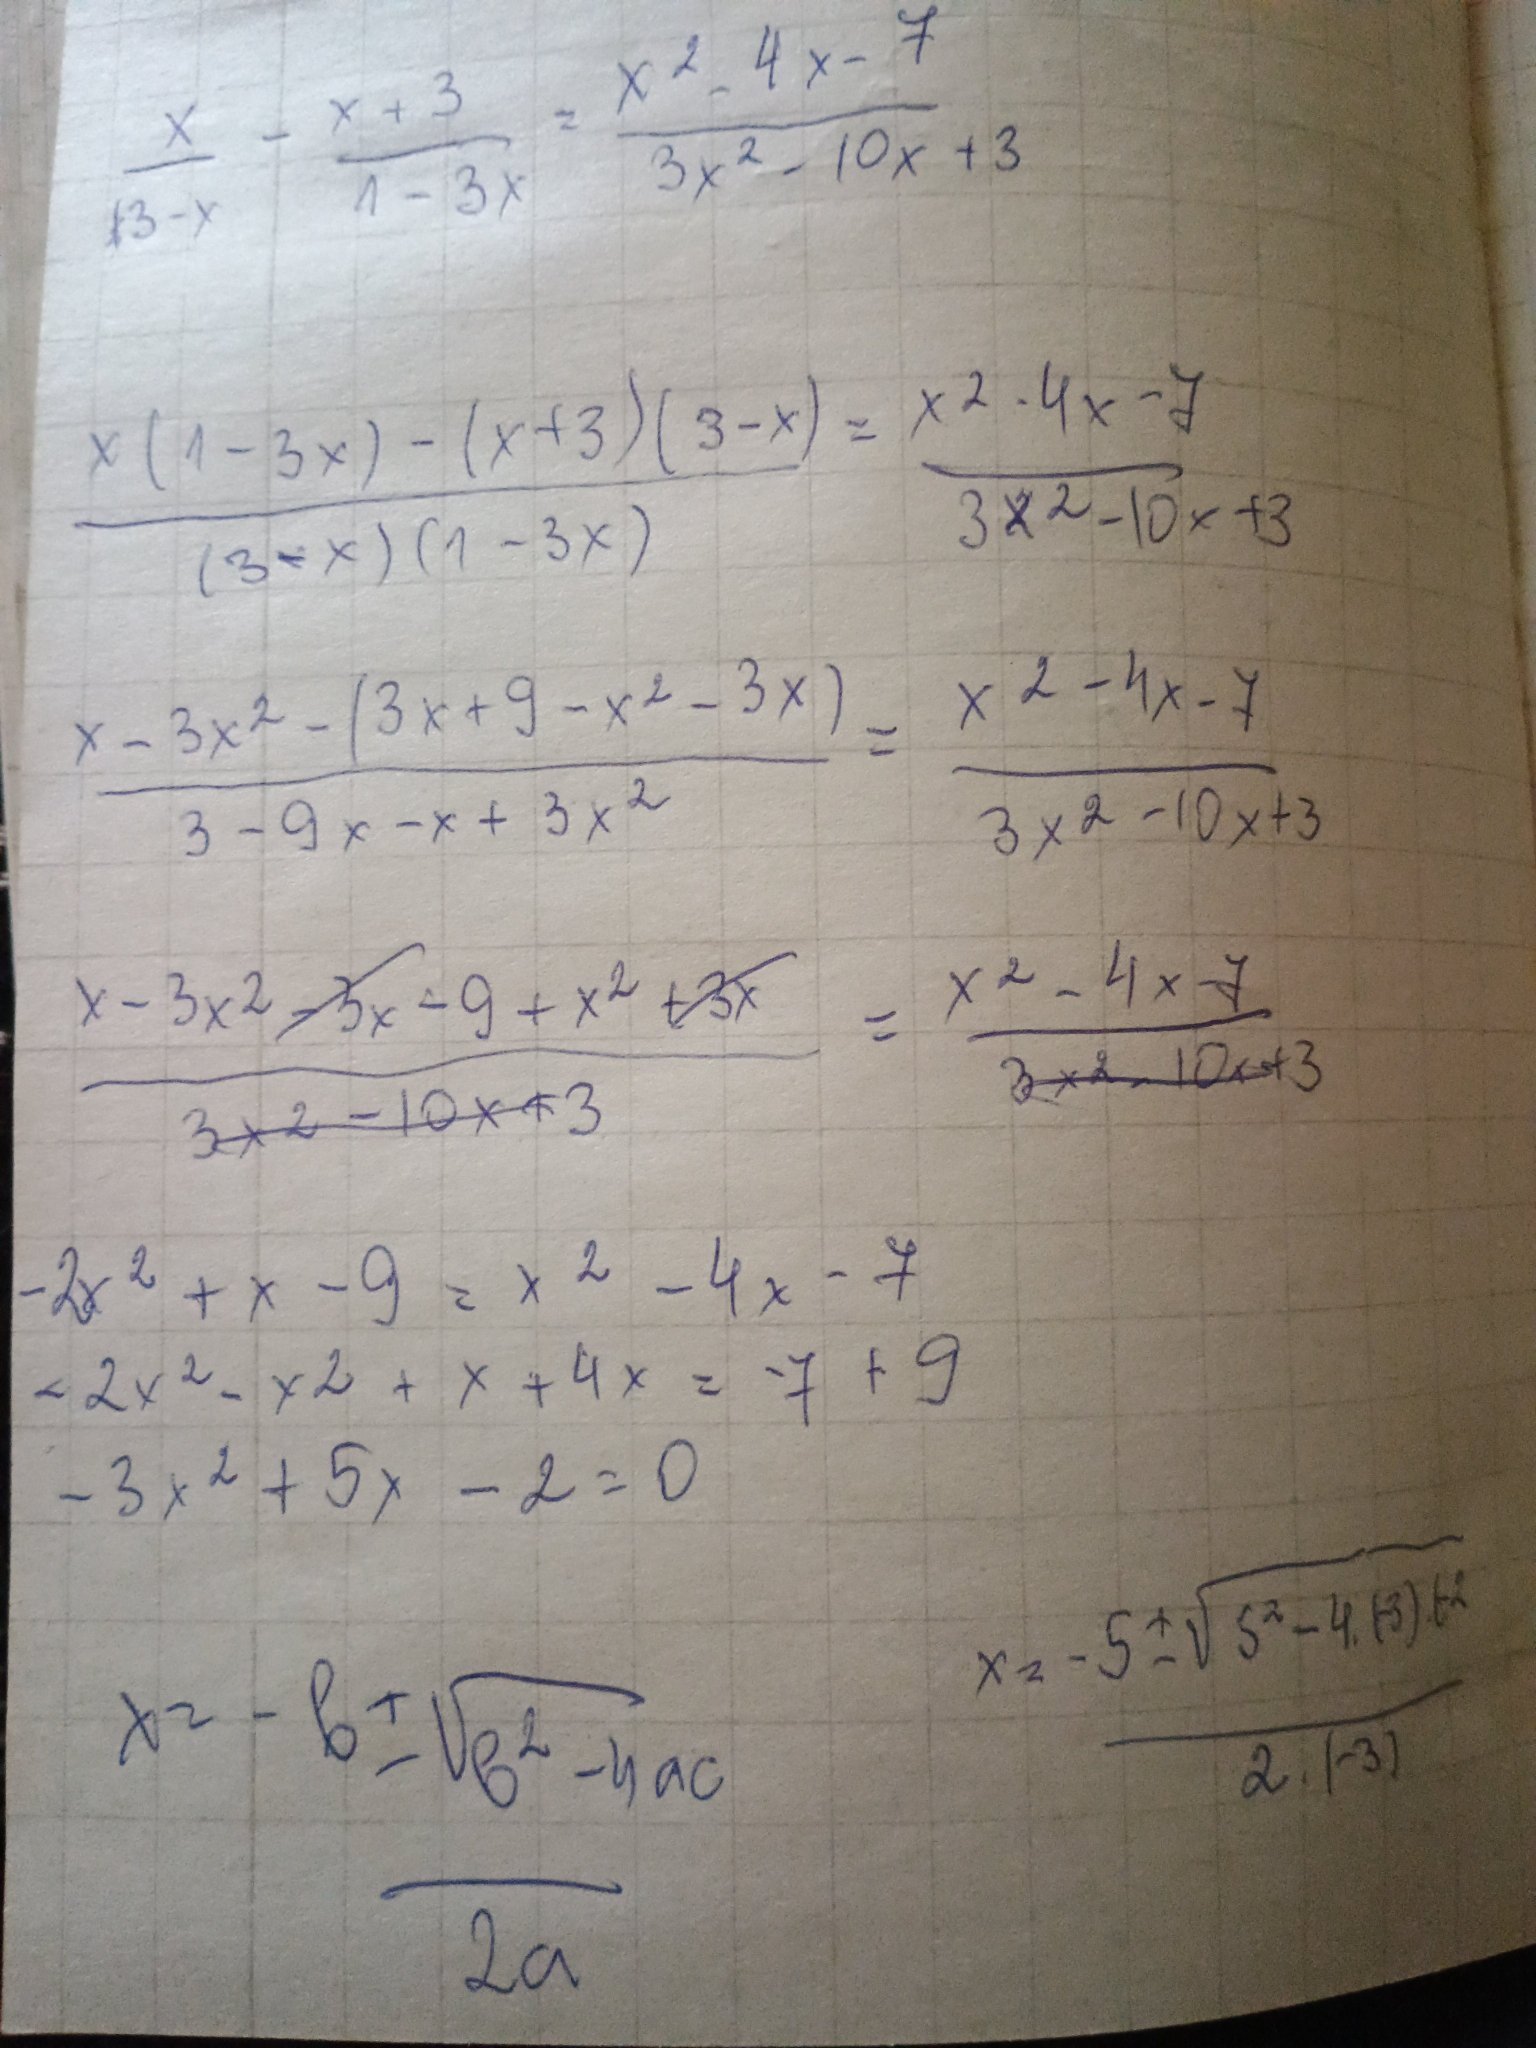 x/(3-x) - (x+3)/(1-3x) = (x²-4x-7)/(3x²-10x+3)
(x(1-3x)-(x+3)(3-x))/((3-x)(1-3x)) = (x²-4x-7)/(3x²-10x+3)
(x-3x²-(3x+9-x²-3x))/(3-9x-x+3x²) = (x²-4x-7)/(3x²-10x+3)
(x-3x²-3x-9+x²+3x)/(3x²-10x+3) = (x²-4x-7)/(3x²-10x+3)
-2x²+x-9=x²-4x-7
-2x²-x2+x+4x=-7+9
-3x²+5x-2=0
x=-b±√(b²-4ac)/2a
x=-5±√(5²-4·(-3)·(-2)/2·(-3)